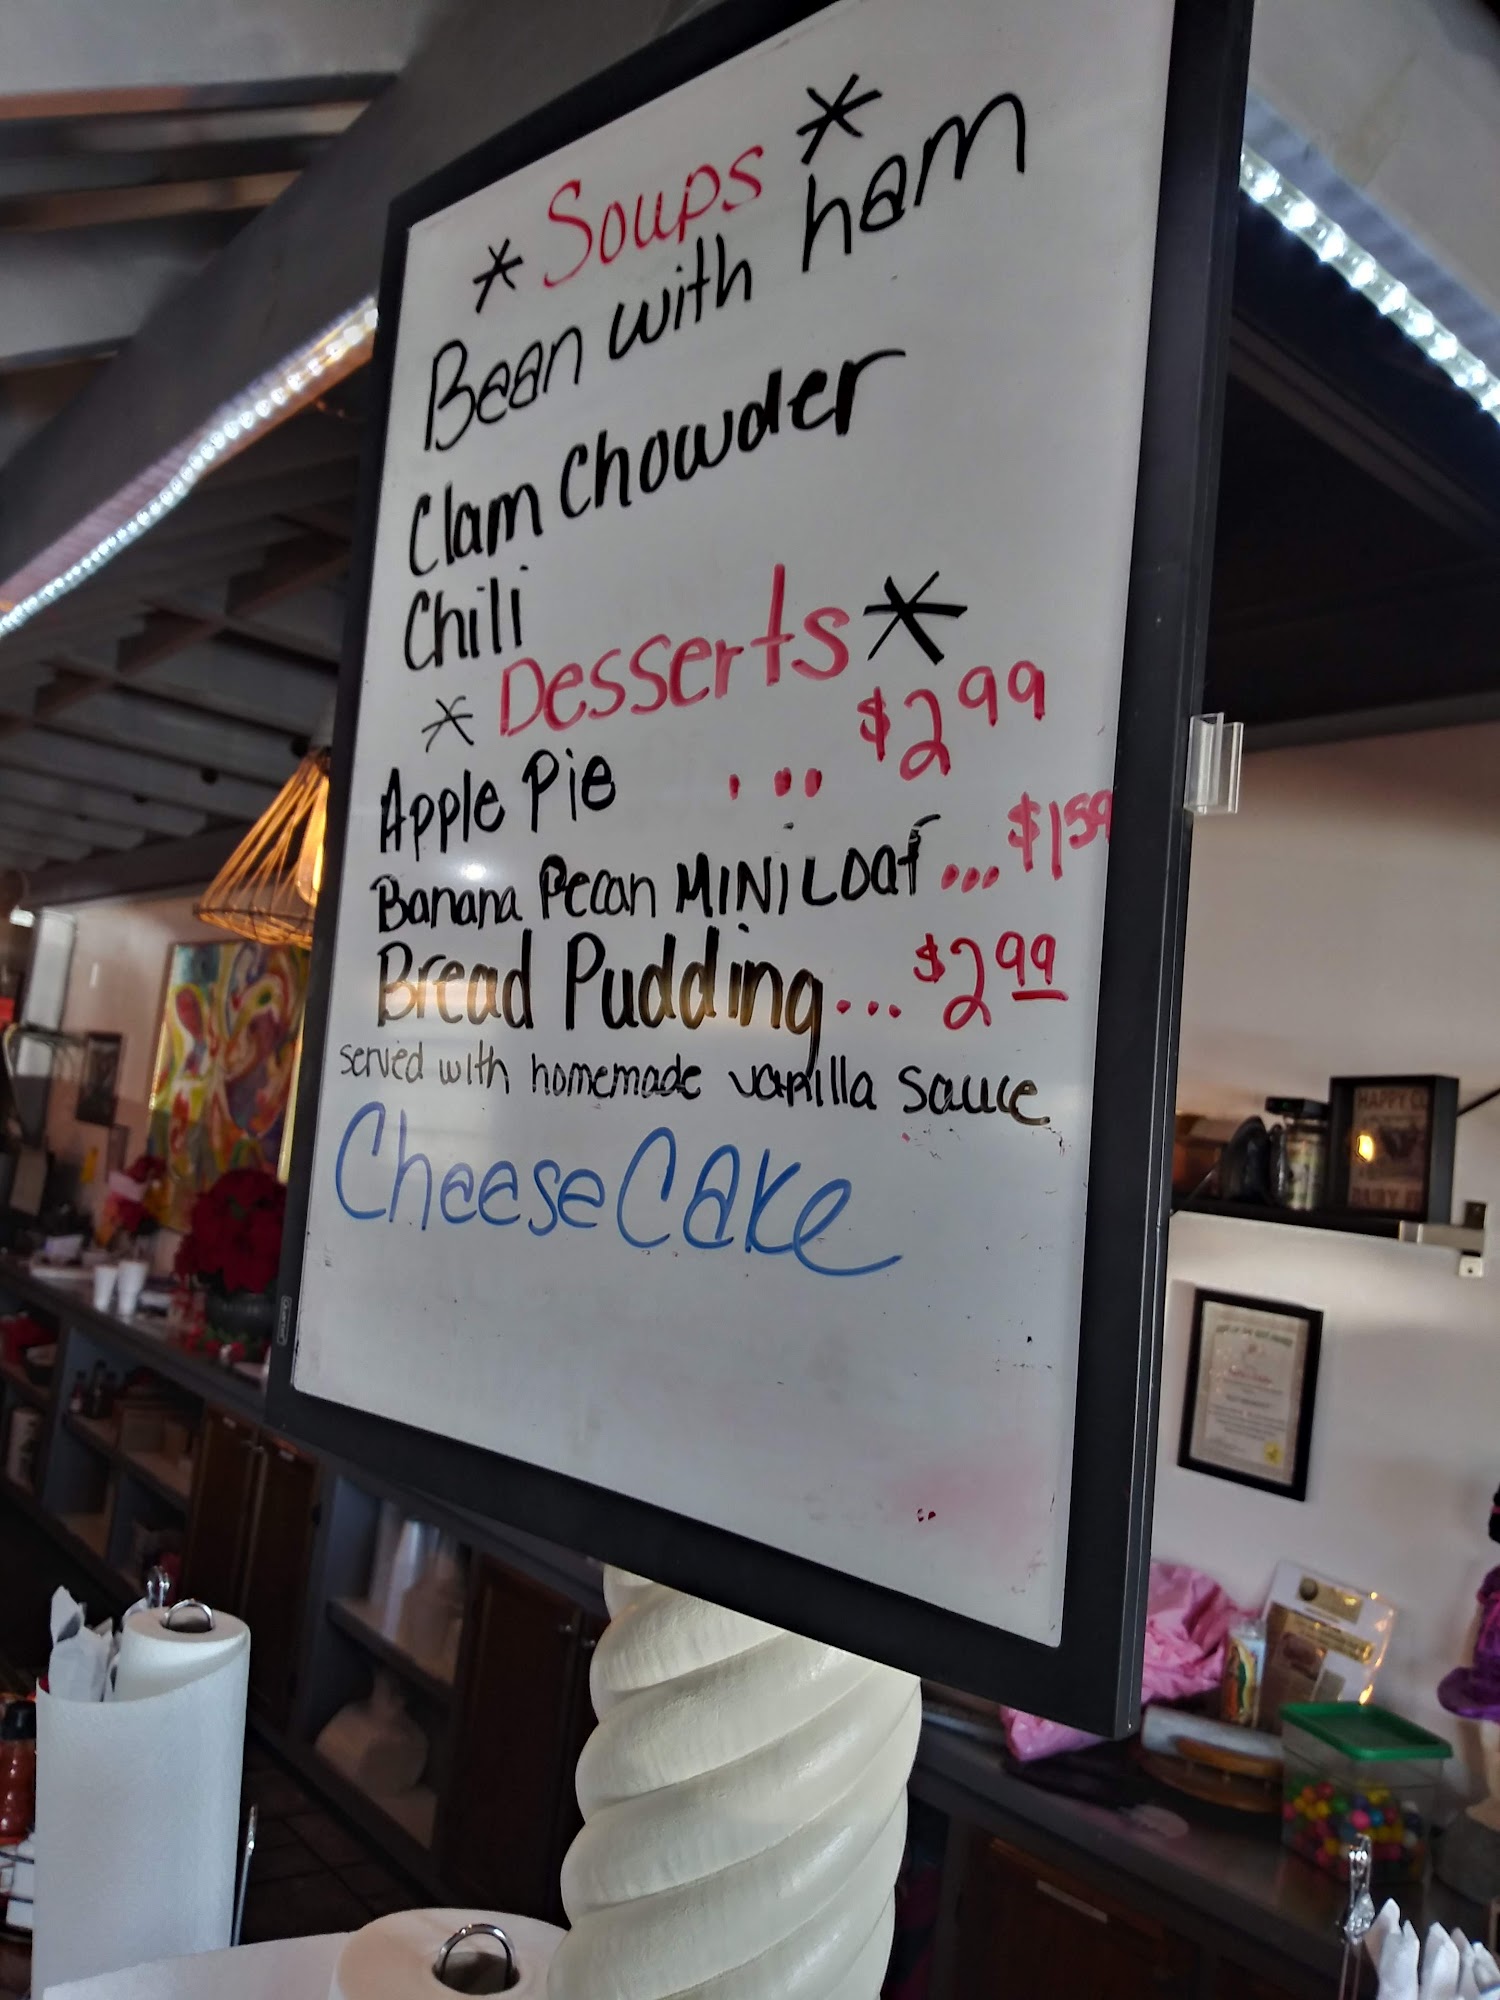 * Soups *
Bean with ham
Clam Chowder
Chili
* Desserts *
Apple Pie ... $2 99
Banana Pecan MINI LOaf ... $1 59
Bread Pudding ... $2 99
served with homemade vanilla sauce
CheeseCake
HAPPY